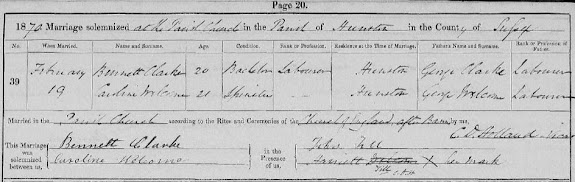 Page 20.
1870 Marriage solemnized at the Parish Church in the Parish of Hunston in the County of Suffolk
No. When Married. Name and Surname. Age Condition. Rank or Profession. Residence at the Time of Marriage. Father's Name and Surname. Rank or Profession of Father.
39 February Bennett Clarke 20 Bachelor Labourer Hunston George Clarke Labourer
19 Caroline Welcome 21 Spinster — Hunston George Welcom Labourer
Married in the Parish Church according to the Rites and Ceremonies of the Church of England, after Banns by me,
C. D. Holland
This Marriage was solemnized between us, Bennett Clarke
Caroline Welcome
in the Presence of us, John
Harriett X her mark